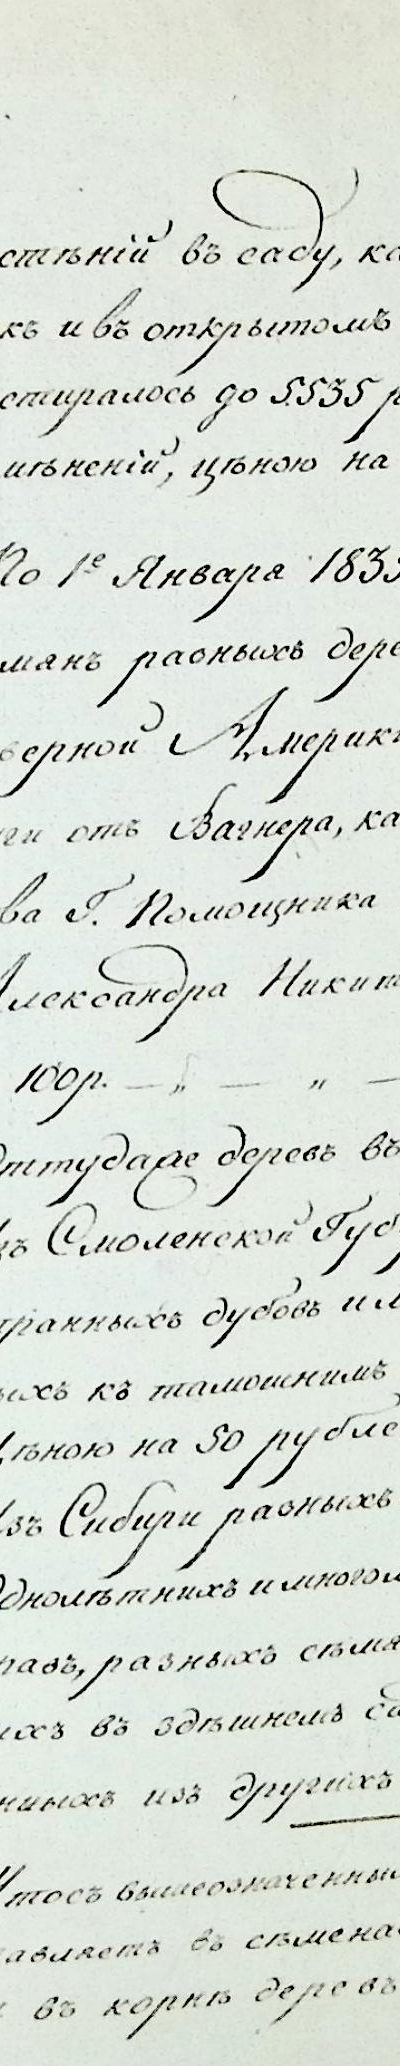 стѣній въ саду, ка
къ и въ открытомъ
стиралось до 5535 р
мѣненій, цѣною на
По 1е Января 183
мянъ разныхъ дере
верной Америк
ги отъ Вагнера, ка
ва Г. Помощника
Александра Никит
100р. — „ — „ —
Оттудаже деревъ въ
Изъ Смоленской Губ
транныхъ дубовъ и
ыхъ къ тамошнимъ
Цѣною на 50 рубле
Изъ Сибири разныхъ
Однолѣтнихъ и многол
травъ, разныхъ сѣмя
ихъ въ здѣшнемъ са
нныхъ изъ другихъ
Итогъ вышеозначенны
тавляетъ въ сѣмена
и въ корнѣ деревъ